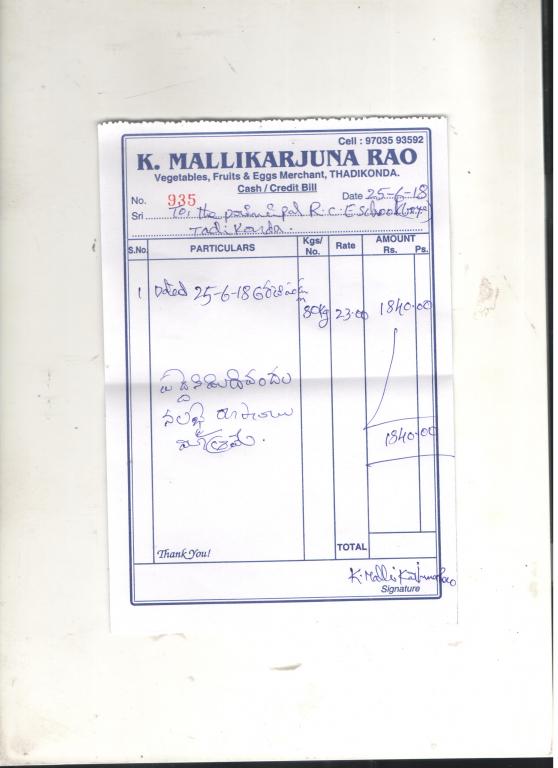 Cell : 97035 93592
K. MALLIKARJUNA RAO
Vegetables, Fruits & Eggs Merchant, THADIKONDA.
Cash / Credit Bill
No. 935 Date 25-6-18
Sri To, the principal R.C.E School
Tadikonda.
S.No. PARTICULARS Kgs/No. Rate AMOUNT Rs. Ps.
1 Dated 25-6-18 80kg 23.00 1840.00
రూపాయలు
మాత్రమే.
1840.00
TOTAL
Thank You!
K. Mallikarjuna Rao
Signature